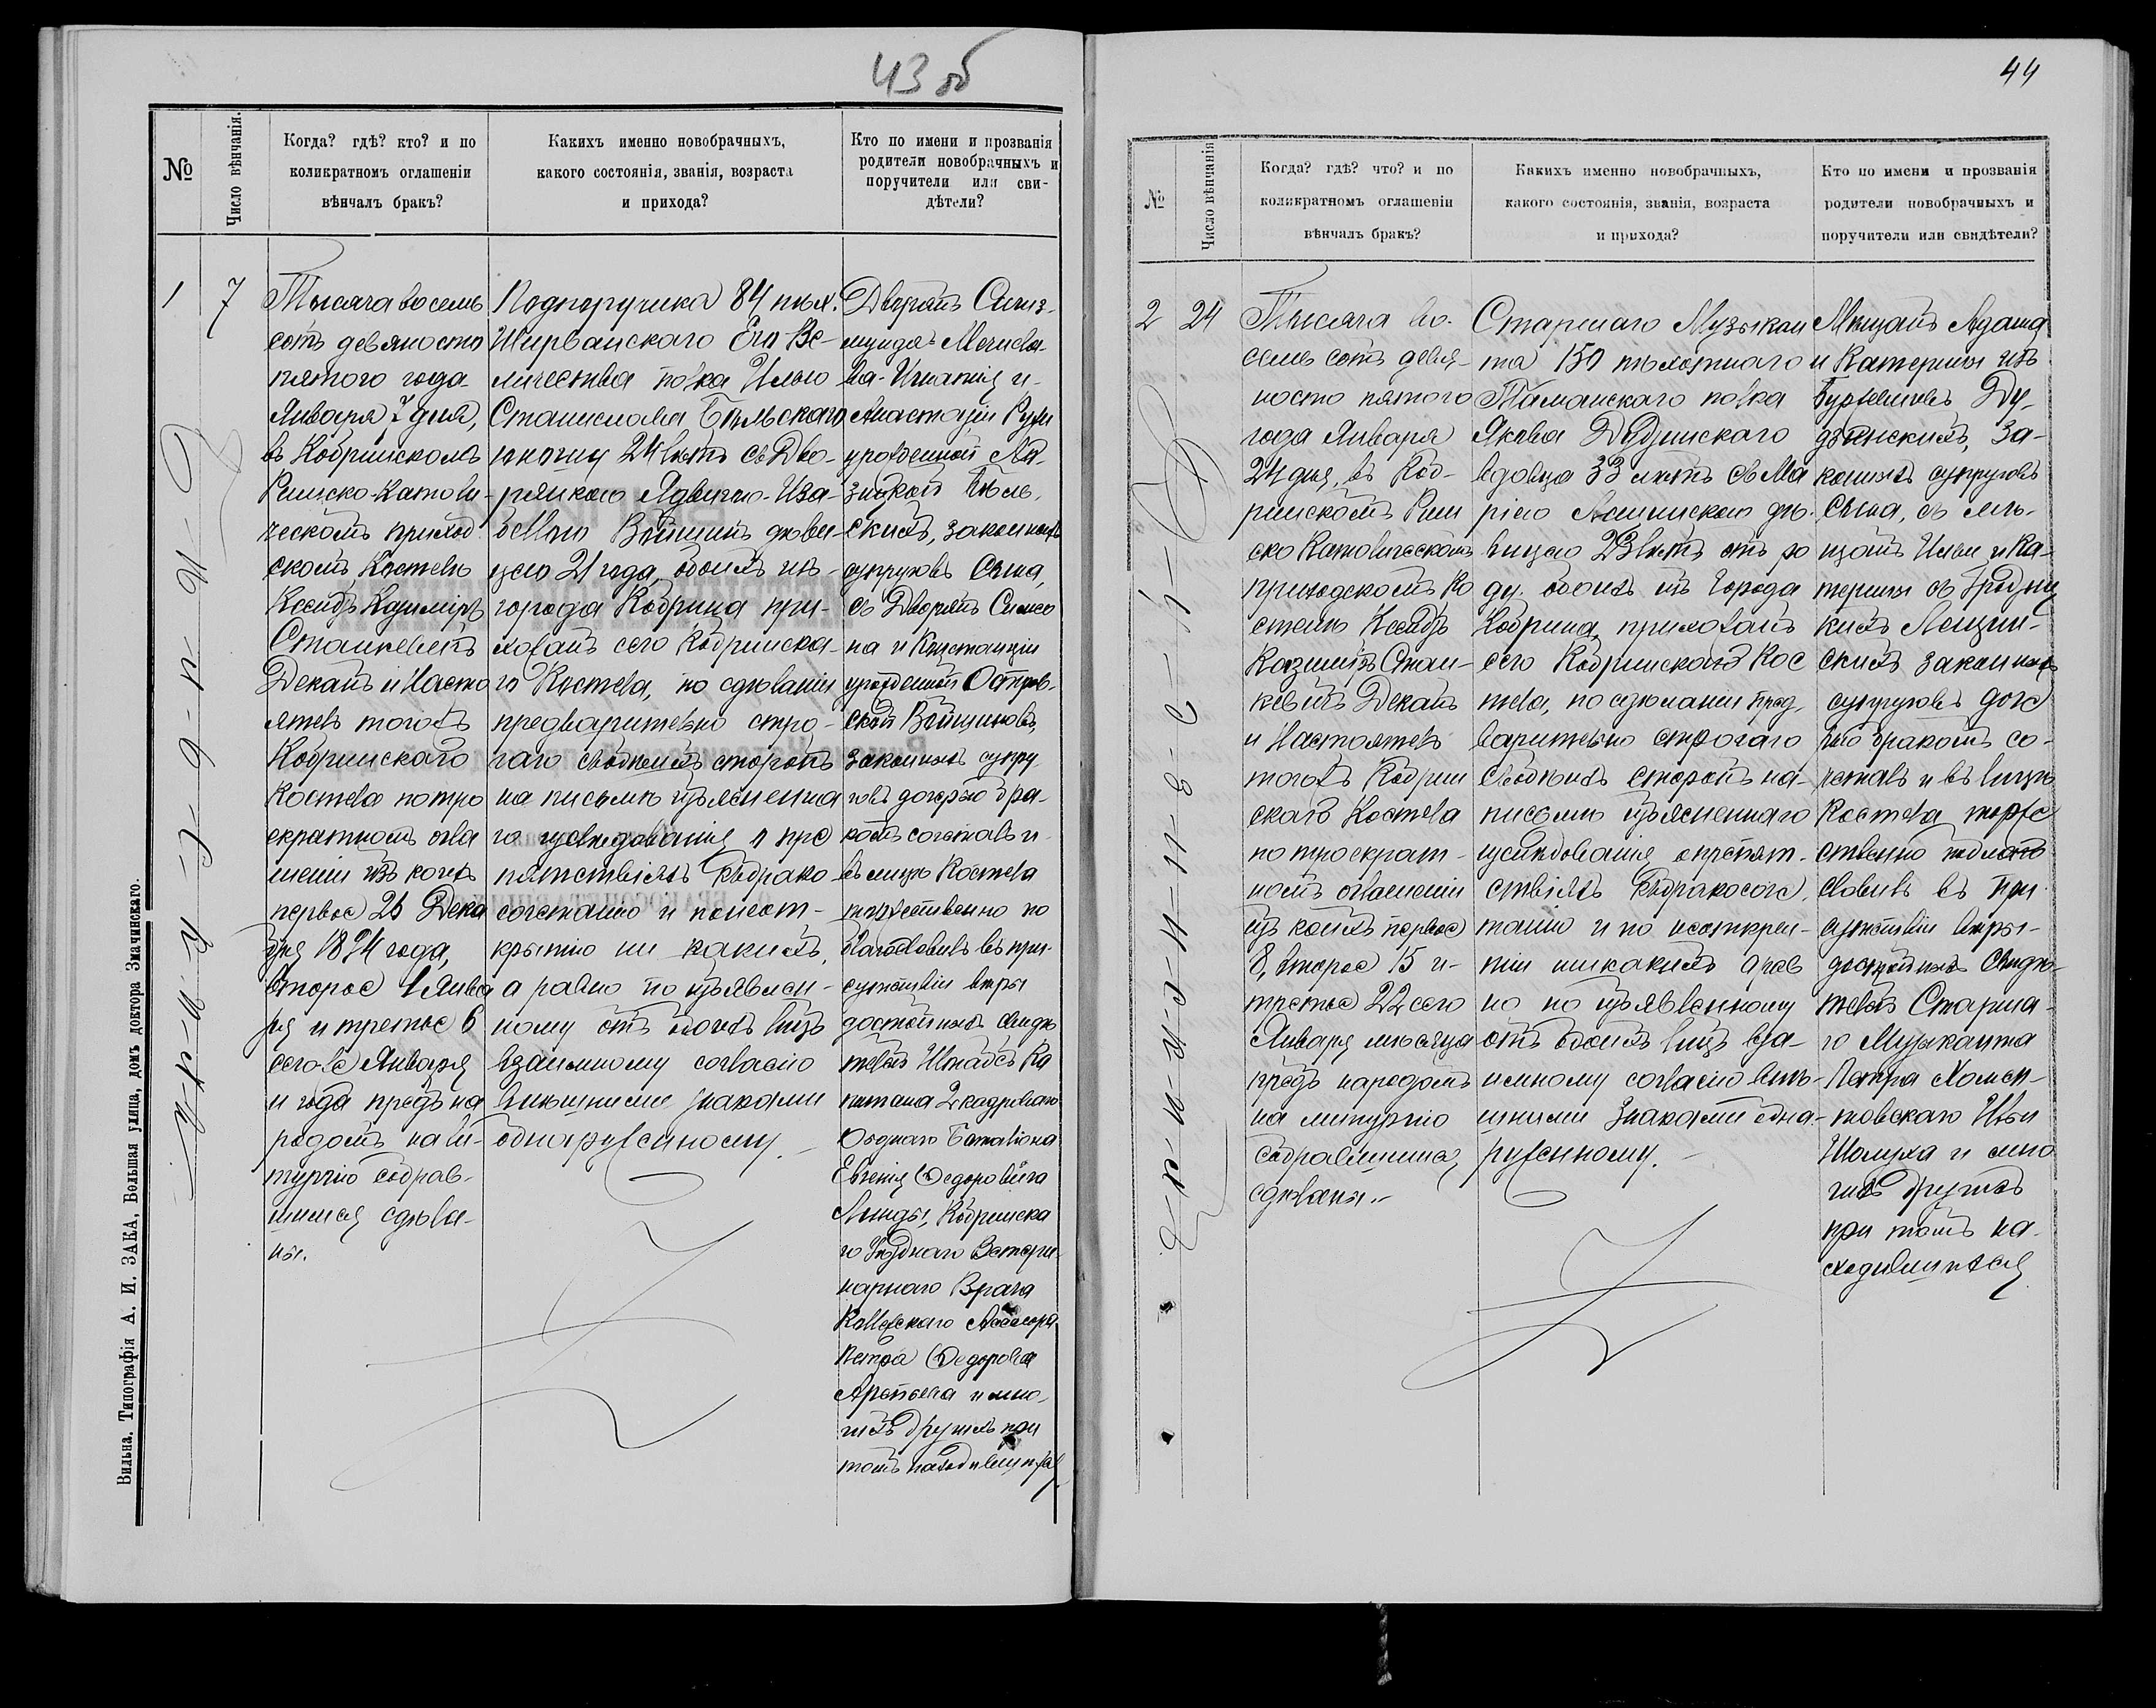 43 об
№
Число вѣнчанія.
Когда? гдѣ? кто? и по
коликратномъ оглашеніи
вѣнчалъ бракъ?
Какихъ именно новобрачныхъ,
какого состоянія, званія, возраста
и прихода?
Кто по имени и прозванія
родители новобрачныхъ и
поручители или сви-
дѣтели?
1
7
Тысяча восемь
сотъ девяносто
пятого года
Января 7 дня,
въ Кобринскомъ
Римско-Католи-
ческомъ приход
скомъ Костелѣ
Ксендзъ Казиміръ
Станкевичъ
Деканъ и Насто
ятель тогожъ
Кобринскаго
Костела по тро
екратномъ огла
шеніи изъ коихъ
первое 26 Дека
бря 1894 года,
второе 1 Янва
ря и третье 6
сего же Января
и года предъ на
родомъ на Ли-
тургію собрав-
шимся сдѣла-
ны.
Подпоручика 84 пѣх.
Ширванскаго Его Ве-
личества полка Илью
Станислава Бѣльскаго
юношу 24 лѣтъ съ Дво-
рянкою Ядвигою-Иза-
беллою Войшинъ дѣви-
цею 21 года, обоихъ изъ
города Кобрина при-
хожанъ сего Кобринска-
го Костела, по сдѣланіи
предварительно стро-
гаго съ обоихъ сторонъ
на письмѣ изъясненна
го изслѣдованія о пре
пятствіяхъ къ брако
сочетанію и по неот-
крытію ни какихъ,
а равно по изъявлен-
ному отъ обоихъ лицъ
взаимному согласію
внѣшними знаками
обнаруженному. –
Дворянъ Сигиз-
мунда-Мечисла-
ва-Игнатія и
Анастазіи
урожденной
Бѣль-
скихъ, законныхъ
супруговъ Сына,
съ Дворянъ Симео
на и Констанціи
урожденной Остров-
ской Войшиновъ,
законныхъ супру
говъ дочерью бра-
комъ сочеталъ и
въ лицѣ Костела
торжественно по
благословилъ въ при-
сутствіи вѣры
достойныхъ свидѣ
телей Штабсъ Ка
питана 2 кадроваго
Обознаго Баталіона
Евгенія Федоровича
Линды, Кобринска
го Уѣзднаго Ветери-
нарнаго Врача
Коллежскаго Ассесора
Петра Федорова
Арепьева и мно-
гихъ другихъ при
томъ находившихся.
Вильна. Типографія А. И. ЗАКА, Большая улица, домъ доктора Змачинскаго.
44
№
Число вѣнчанія
Когда? гдѣ? что? и по
коликратномъ оглашеніи
вѣнчалъ бракъ?
Какихъ именно новобрачныхъ,
какого состоянія, званія, возраста
и прихода?
Кто по имени и прозванія
родители новобрачныхъ и
поручители или свидѣтели?
2
24
Тысяча во-
семь сотъ девя-
носто пятого
года Января
24 дня, въ Коб-
ринскомъ Рим
ско Католическомъ
приходскомъ Ко
стелѣ Ксендзъ
Казиміръ Стан-
кевичъ Деканъ
и Настоятель
тогожъ Кобрин
скаго Костела
по троекрат-
номъ оглашеніи
изъ коихъ первое
8, второе 15 и
третье 22 сего
Января мѣсяца
предъ народомъ
на литургію
собравшимся
сдѣланы. –
Старшаго Музыкан
та 150 пѣхотнаго
Таманскаго полка
Якова Дудзинскаго
вдовца 33 лѣтъ съ Ма
ріею Лещинскою дѣ-
вицею 23 лѣтъ отъ ро
ду. обоихъ изъ Города
Кобрина, прихожанъ
сего Кобринскаго Кос
тела, по сдѣланіи пред-
варительно строгаго
съ обоихъ сторонъ на
письмѣ изъясненнаго
изслѣдованія о препят-
ствіяхъ къ бракосоче-
танію и по неоткры-
тіи никакихъ а рав
но по изъявленному
отъ обоихъ лицъ вза-
имному согласію внѣ-
шними знаками обна-
руженному. –
Мѣщанъ Адама
и Катерины изъ
Ду-
дзинскихъ, за-
конныхъ супруговъ
Сына, съ мѣ-
щанъ Ильи и Ка-
терины съ
Лещин-
скихъ законныхъ
супруговъ доче
рью бракомъ со-
четалъ и въ лицѣ
Костела торже
ственно поблаго
словилъ въ при
сутствіи вѣры-
достойныхъ свидѣ-
телей Старша-
го Музыканта
Петра Хомен-
товскаго Ильи
Шолуха и мно
гихъ другихъ
при томъ на-
ходившихся